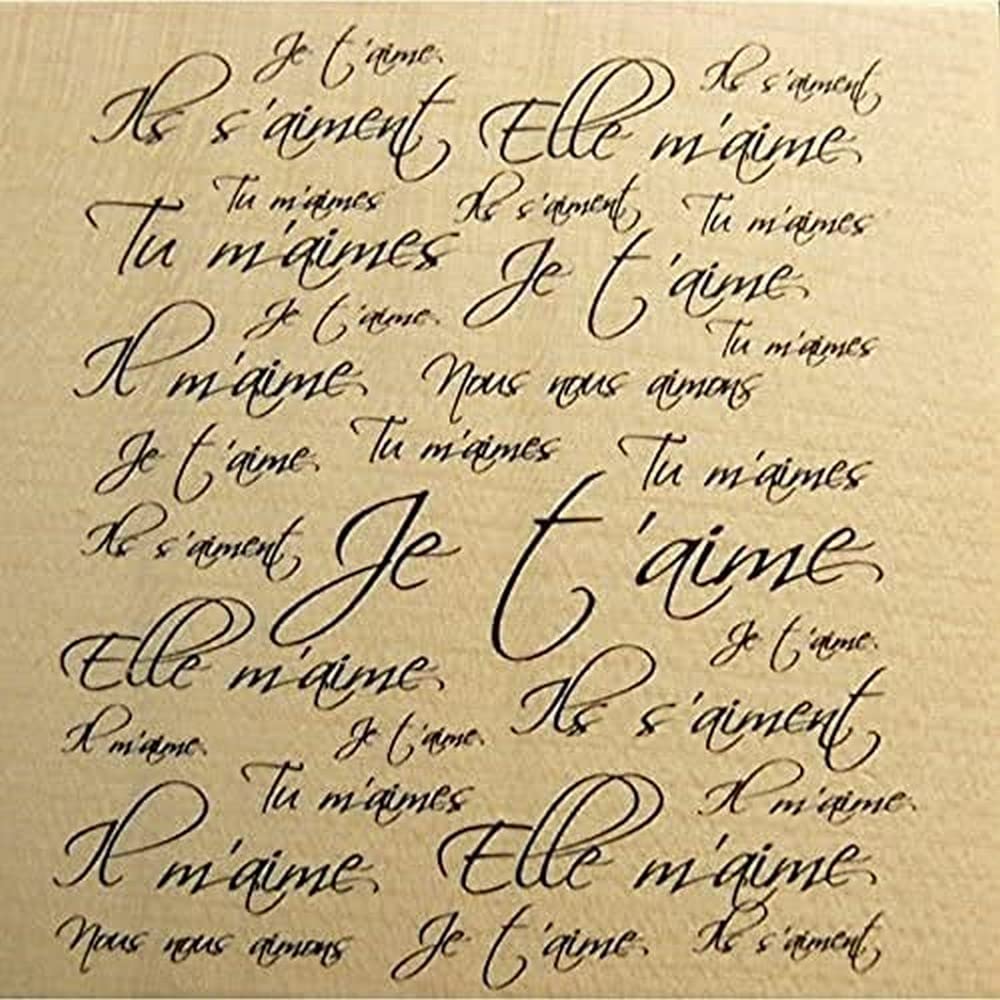 Je t'aime.
Ils s'aiment
Ils s'aiment Elle m'aime
Tu m'aimes Ils s'aiment Tu m'aimes
Tu m'aimes Je t'aime
Je t'aime.
Tu m'aimes
Il m'aime Nous nous aimons
Je t'aime Tu m'aimes Tu m'aimes
Ils s'aiment Je t'aime
Je t'aime.
Elle m'aime Ils s'aiment
Il m'aime. Je t'aime.
Tu m'aimes Il m'aime
Il m'aime Elle m'aime
Nous nous aimons Je t'aime Ils s'aiment